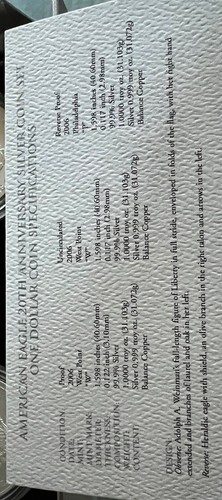 AMERICAN EAGLE 20TH ANNIVERSARY SILVER COIN SET
ONE DOLLAR COIN SPECIFICATIONS
CONDITION: Proof Uncirculated Reverse Proof
DATE: 2006 2006 2006
MINT: West Point West Point Philadelphia
MINT MARK: "W" "W" "P"
DIAMETER: 1.598 inches (40.60mm) 1.598 inches (40.60mm) 1.598 inches (40.60mm)
THICKNESS: 0.122 inch 0.117 inch (2.98mm) 0.117 inch (2.98mm)
COMPOSITION: 99.9% Silver 99.9% Silver 99.9% Silver
WEIGHT: 1.0000 troy oz. (31.103g) 1.0000 troy oz. (31.103g) 1.0000 troy oz. (31.103g)
CONTENT: Silver 0.999 troy oz. (31.072g) Silver 0.999 troy oz. (31.072g) Silver 0.999 troy oz. (31.072g)
Balance Copper Balance Copper Balance Copper
DESIGN:
Obverse: Adolph A. Weinman's full-length figure of Liberty in full stride, enveloped in folds of the flag, with her right hand
extended and branches of laurel and oak in her left.
Reverse: Heraldic eagle with shield, an olive branch in the right talon and arrows in the left.